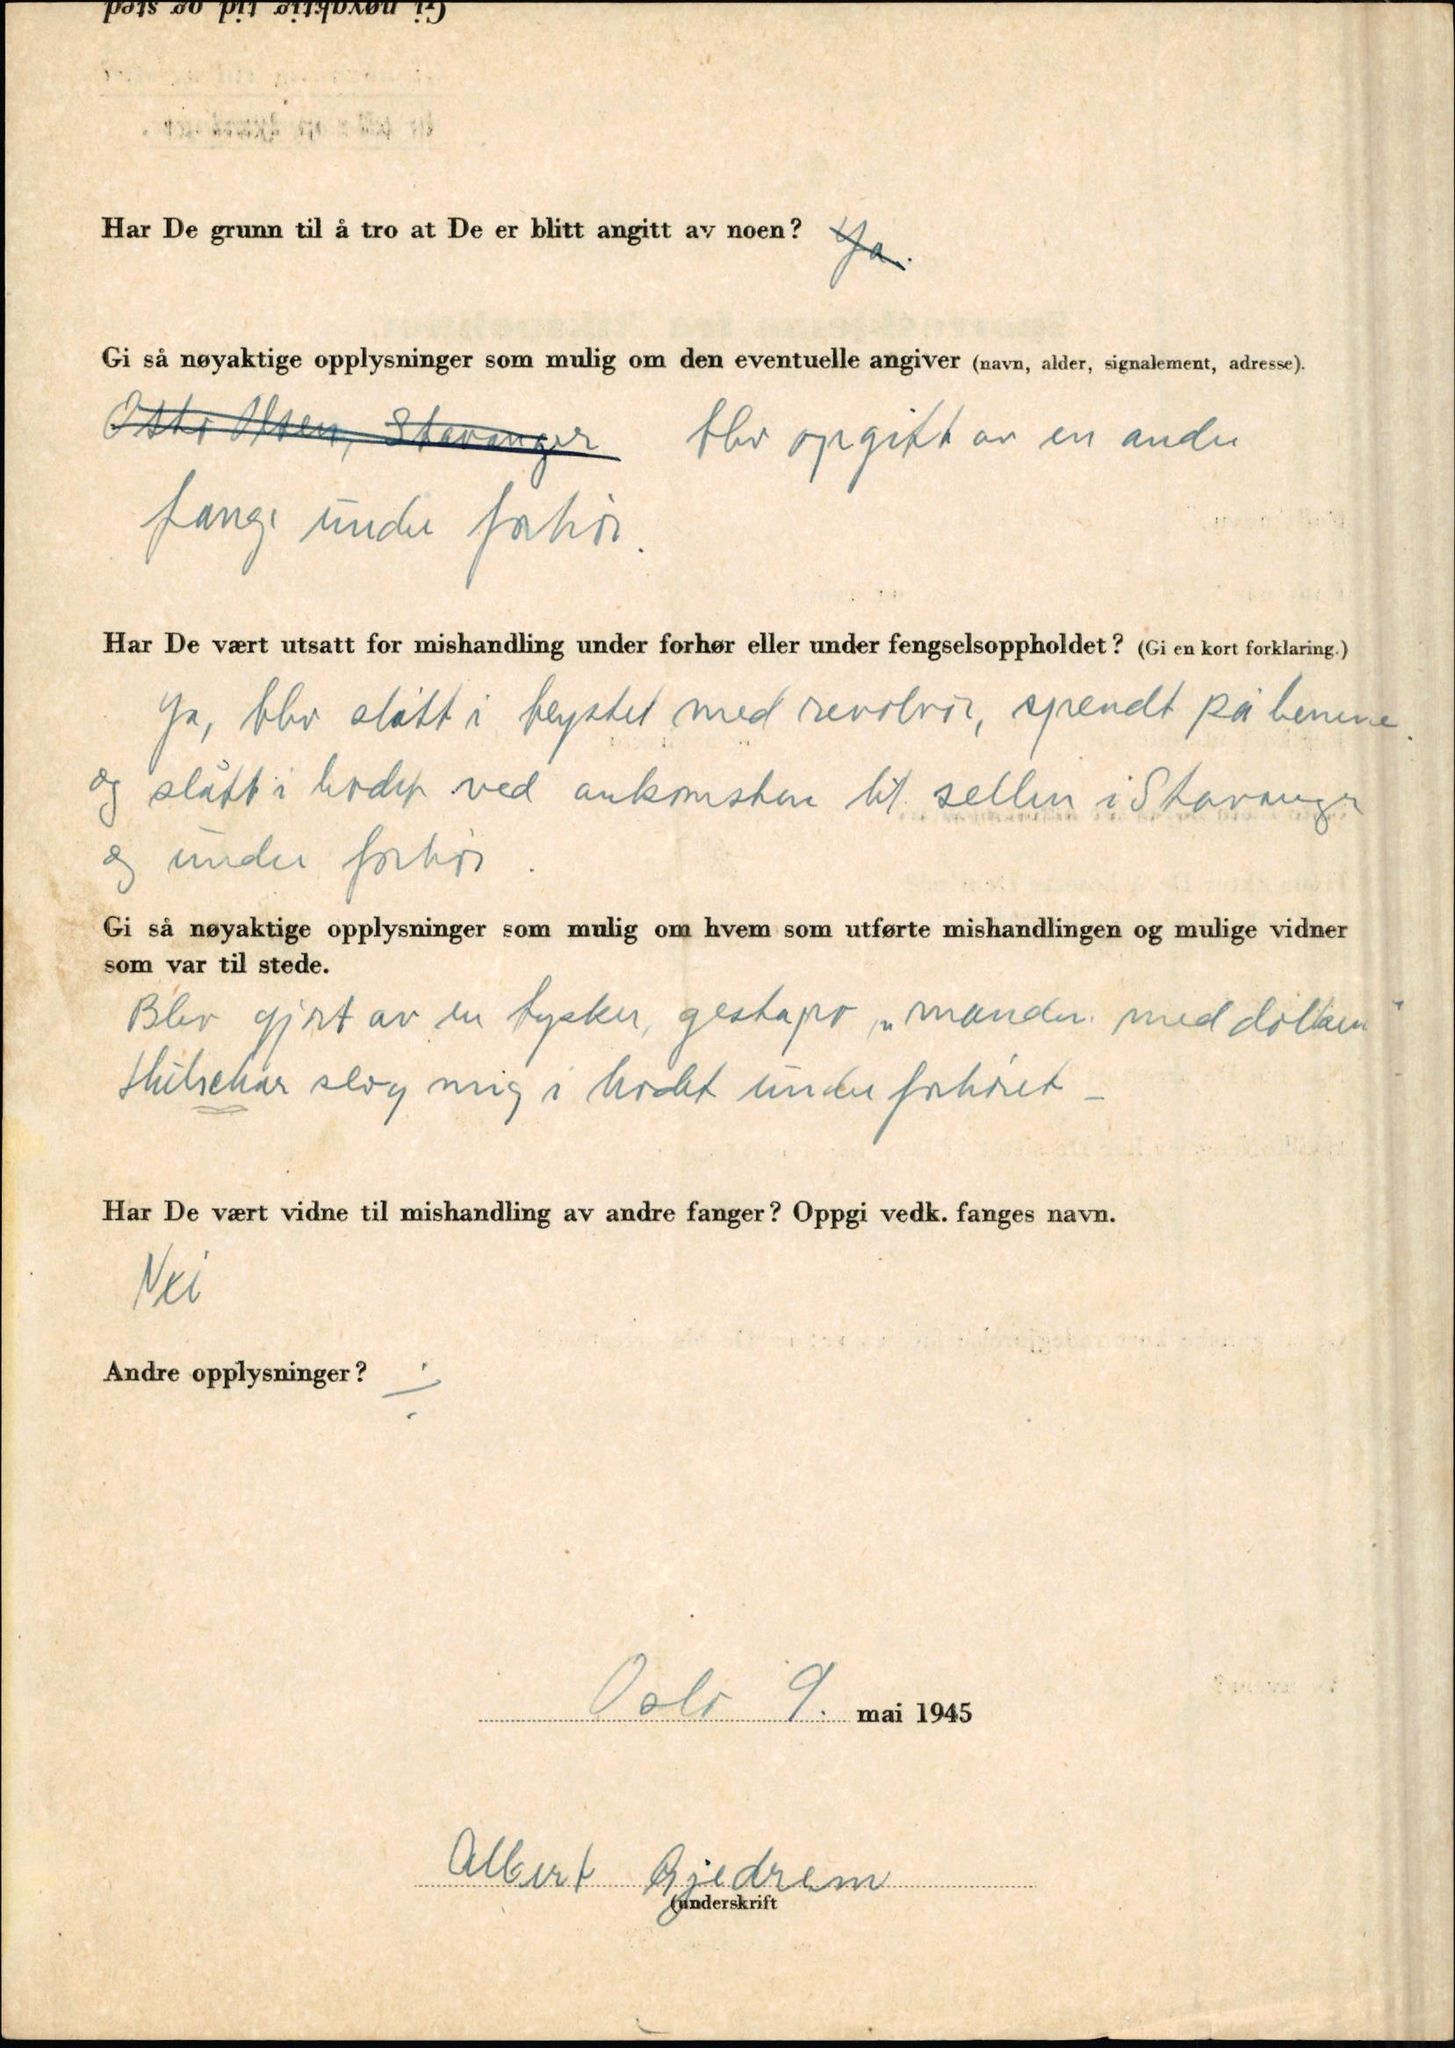 Gi nøyaktig tid og sted
Har De grunn til å tro at De er blitt angitt av noen? Ja.
Gi så nøyaktige opplysninger som mulig om den eventuelle angiver (navn, alder, signalement, adresse).
Otto Olsen, Stavanger blev opgitt av en anden
fange under forhör.
Har De vært utsatt for mishandling under forhør eller under fengselsoppholdet? (Gi en kort forklaring.)
Ja, blev slått i brystet med revolver, spendt på benene
og slått i hodet ved ankomsten til sellen i Stavanger
og under forhör.
Gi så nøyaktige opplysninger som mulig om hvem som utførte mishandlingen og mulige vidner
som var til stede.
Blev gjort av en tysker, gestapo „manden med dolken"
slog mig i hodet under forhöret –
Har De vært vidne til mishandling av andre fanger? Oppgi vedk. fanges navn.
Nei
Andre opplysninger? ÷
Oslo 9. mai 1945
Albert Gjedrem
(underskrift